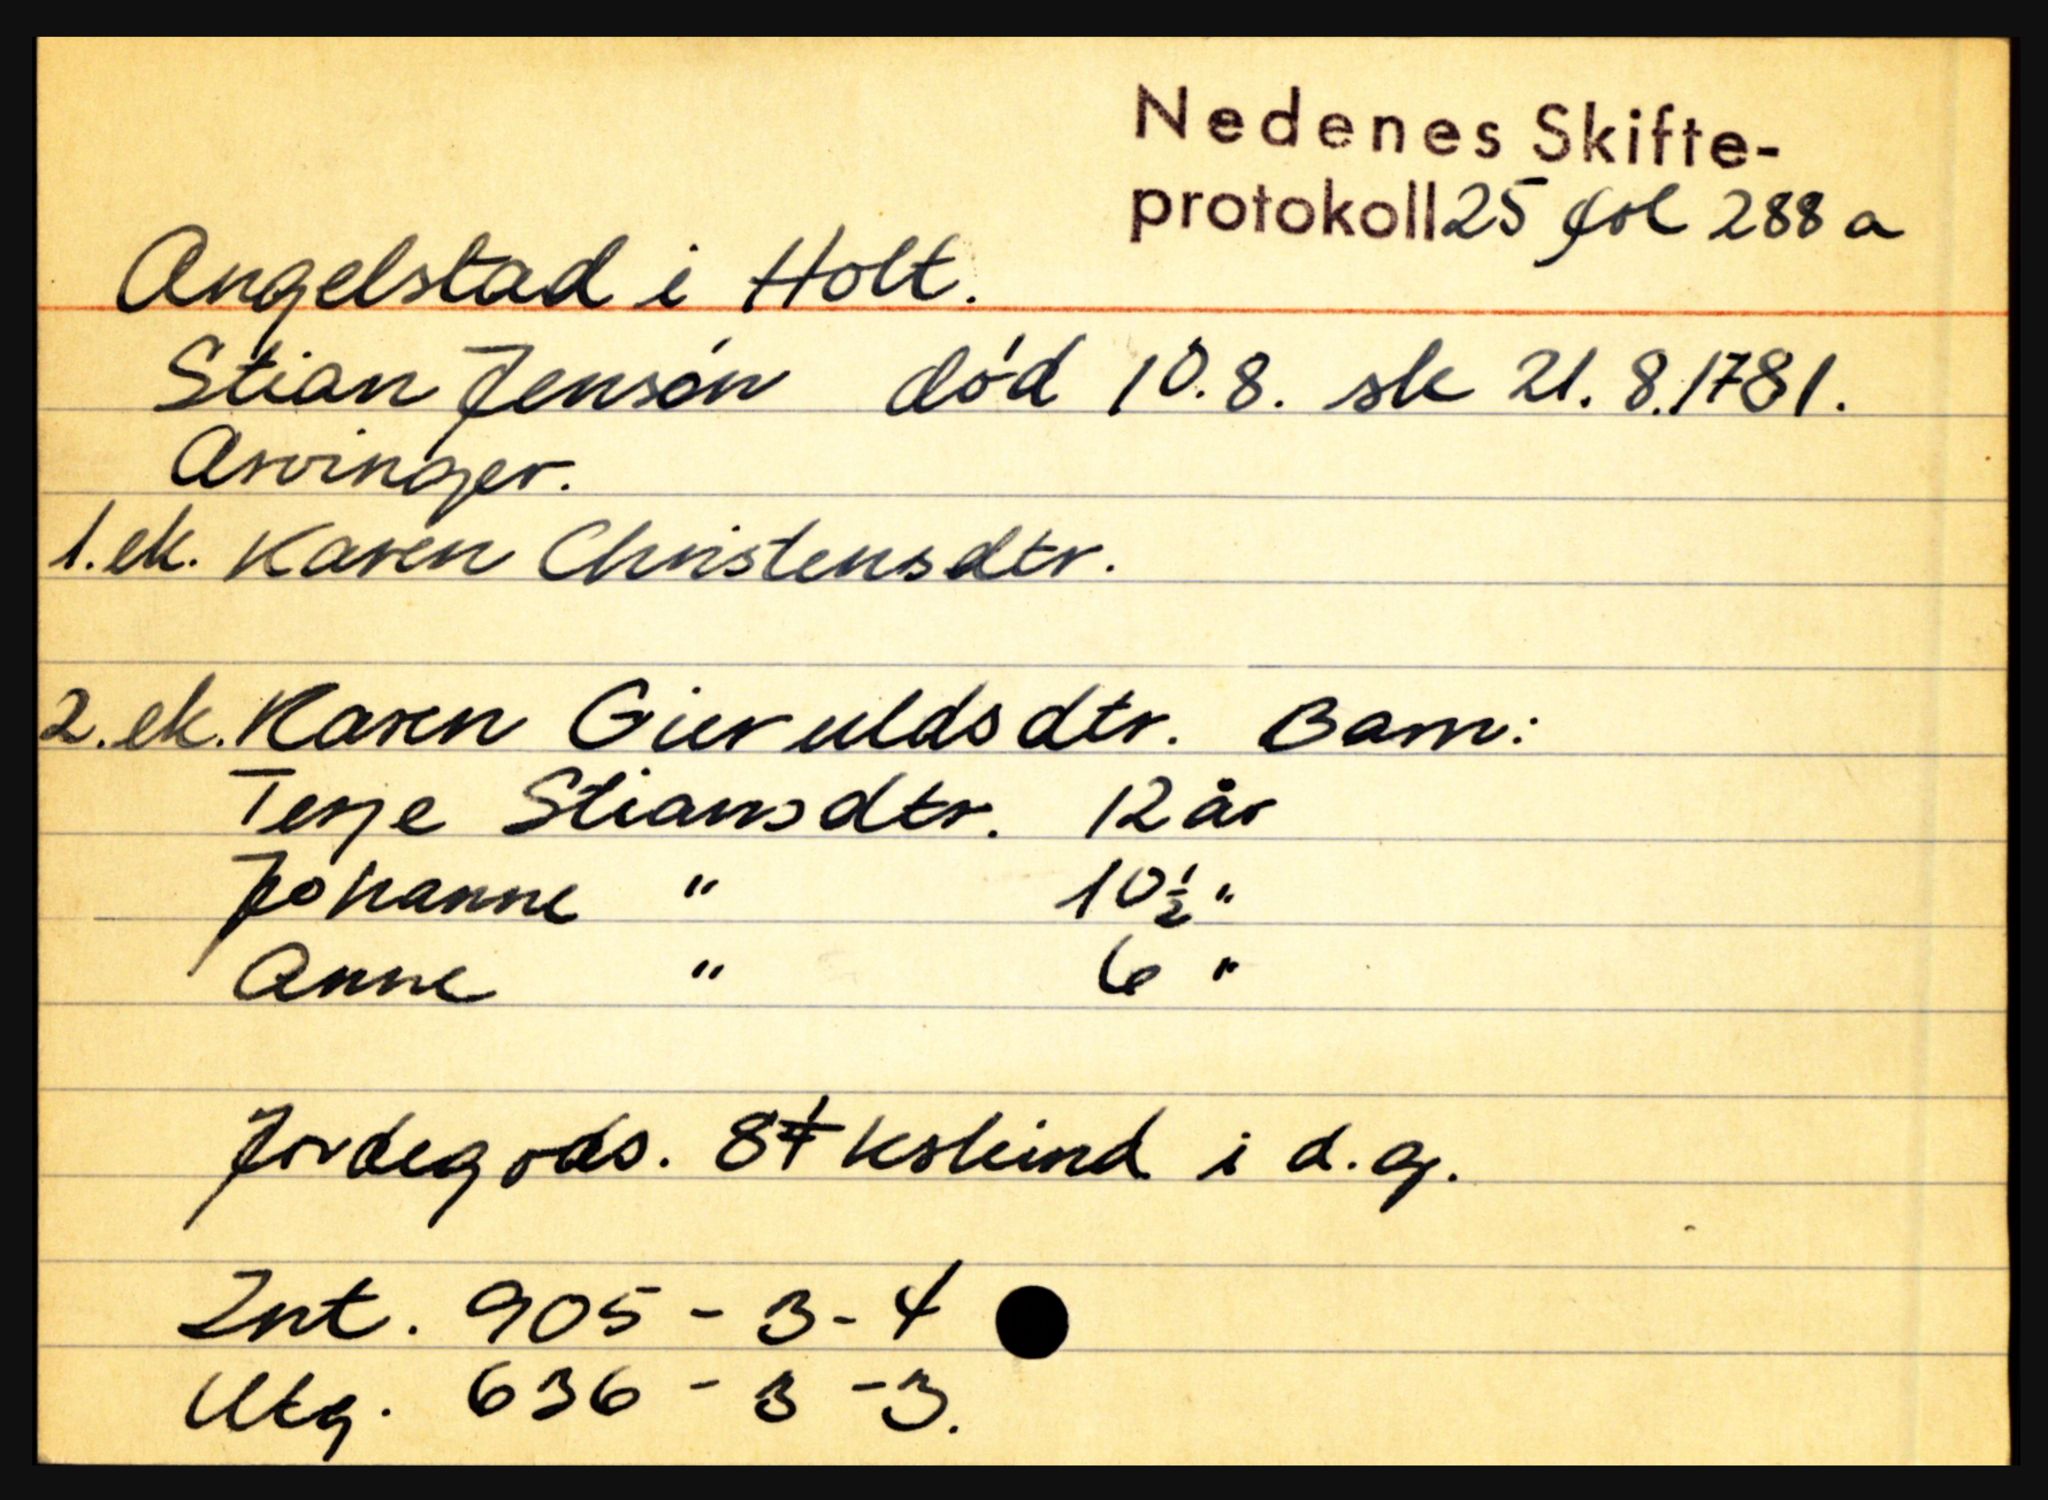 Nedenes Skifte-
protokoll 25 fol 288 a
Angelstad i Holt.
Stian Jensøn død 10.8. sk 21.8.1781.
Arvinger.
1. ek. Karen Christensdtr.
2. ek. Karen Gieruldsdtr. Barn:
Terje Stiansdtr. 12 år
Johanne " 10½ "
Anne " 6 "
Jordegods. 8¼ kskind i d.g.
Int. 905 - 3 - 4
Utg. 636 - 3 - 3.